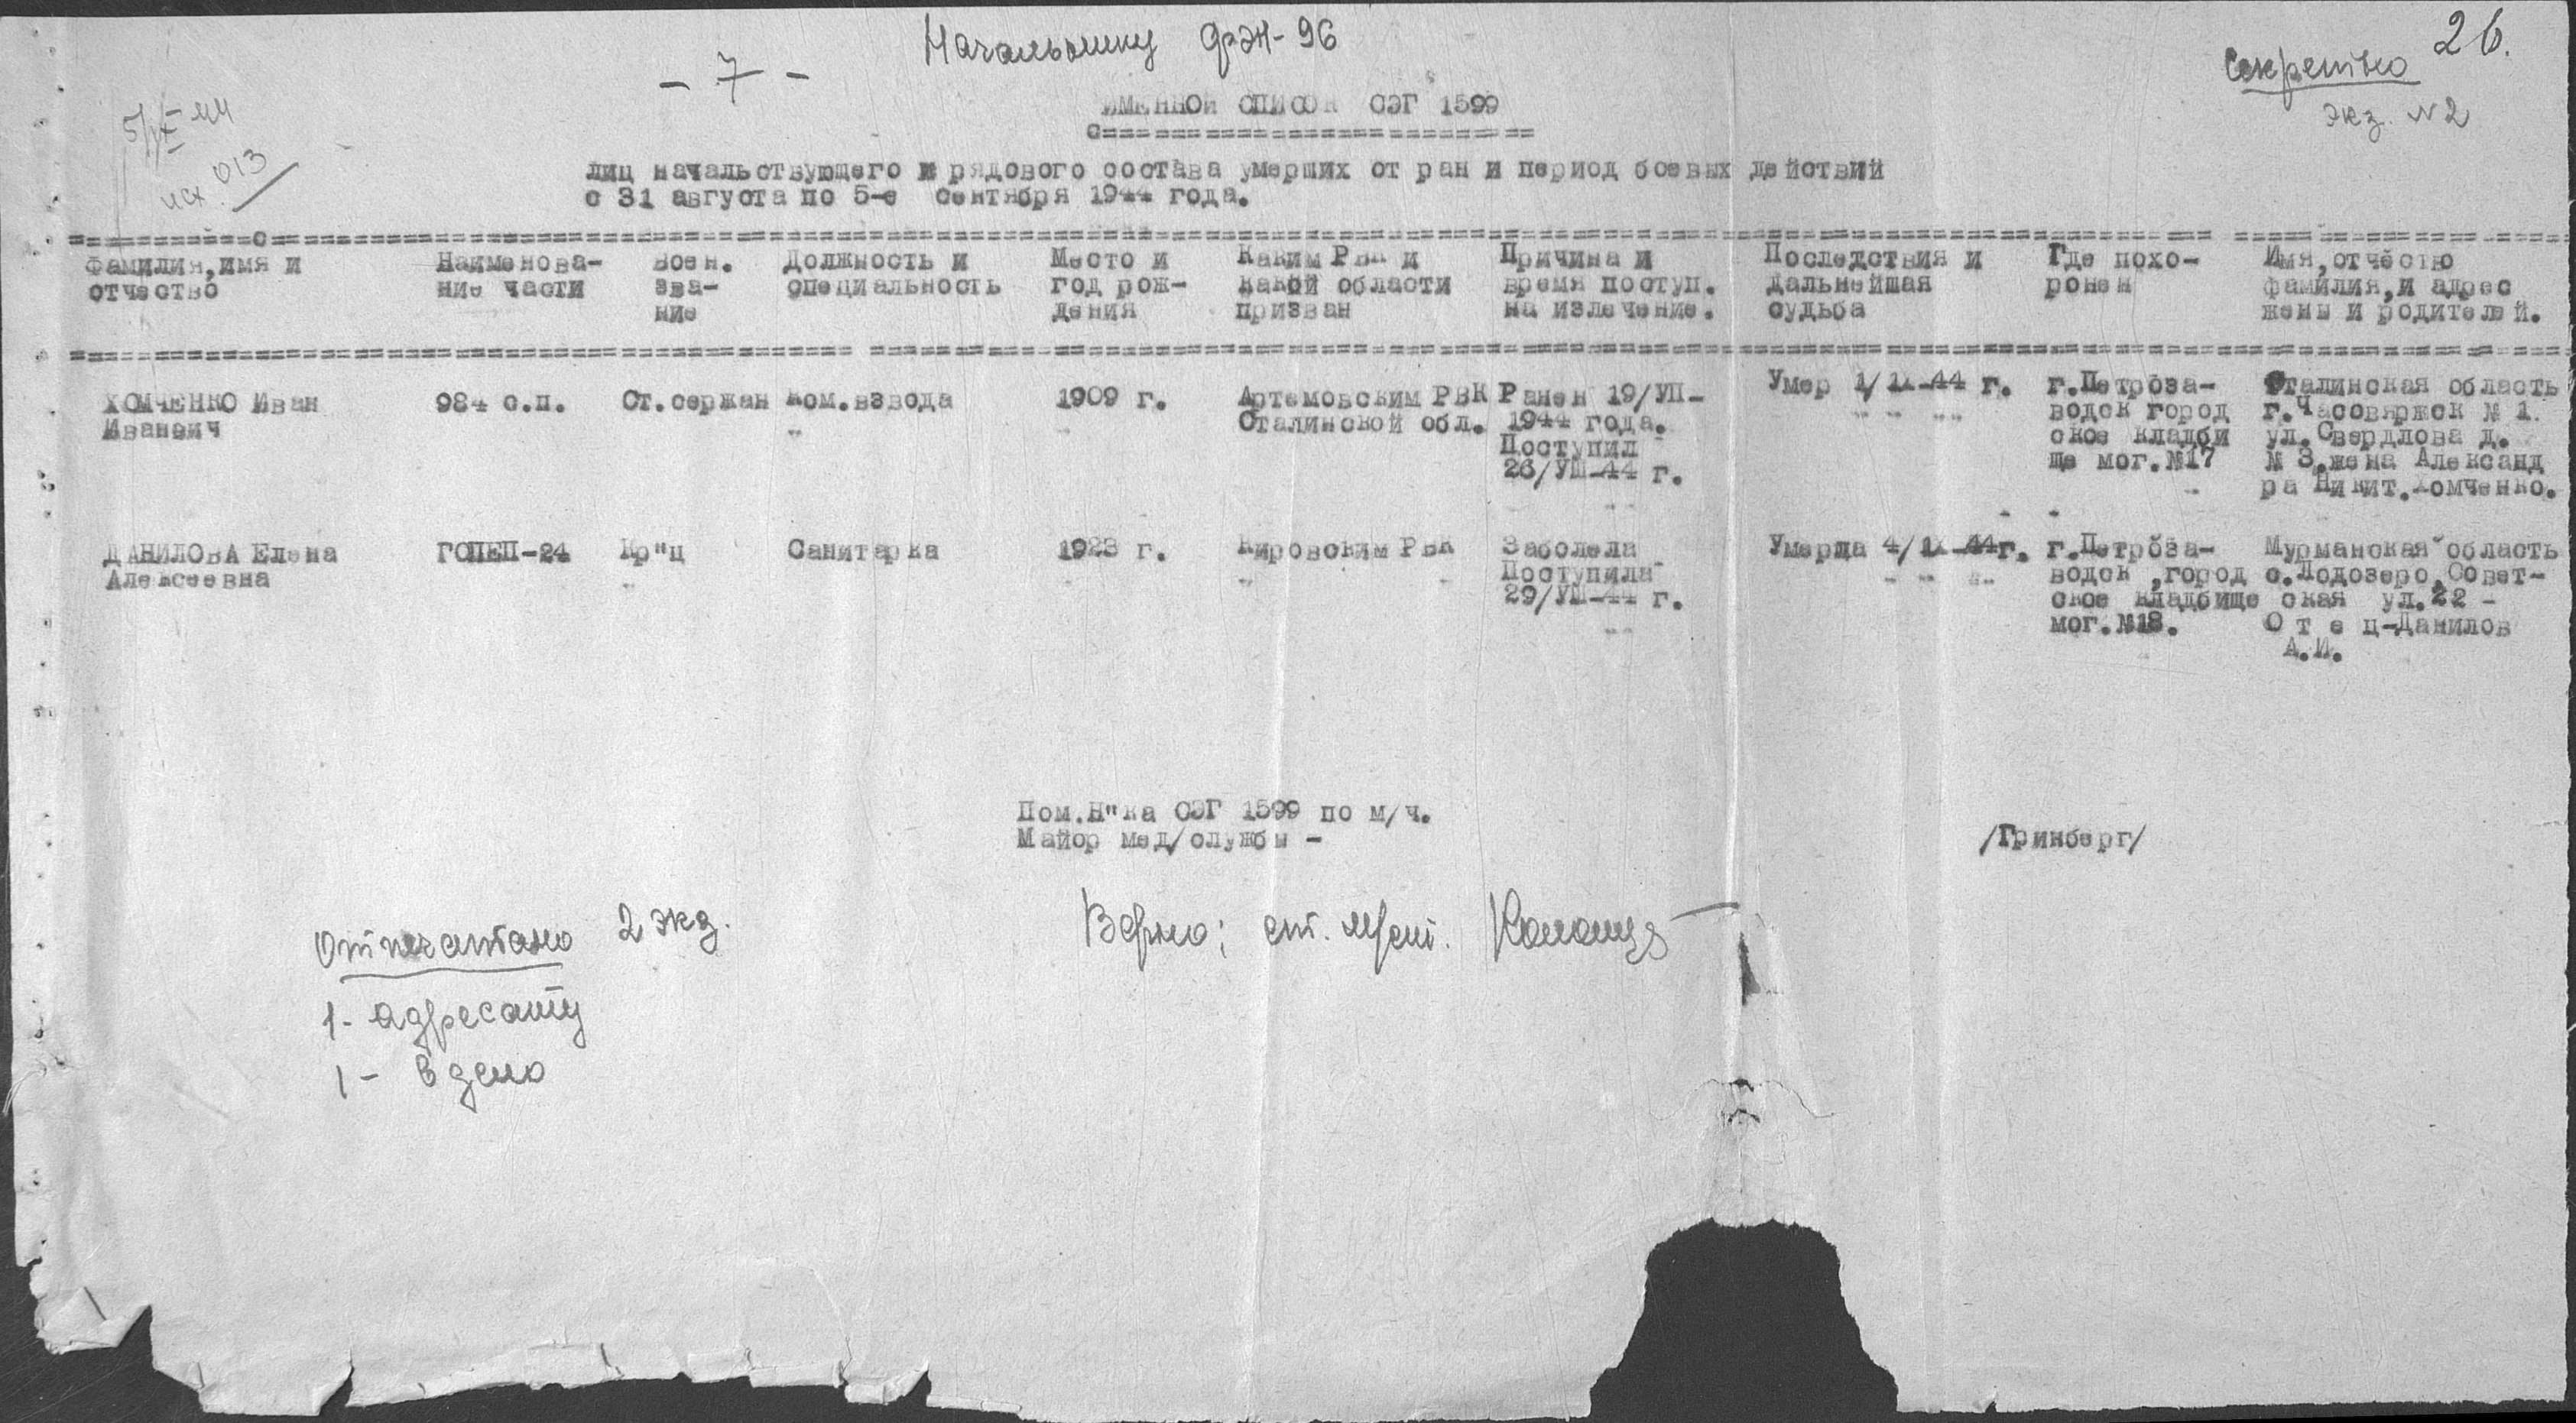 Начальнику фэп-96
26.
- 7 -
Секретно
экз. №2
5/IX 44
исх. 013
ИМЕННОЙ СПИСОК СЭГ 1599
с============================
лиц начальствующего и рядового состава умерших от ран и период боевых действий
с 31 августа по 5-е сентября 1944 года.
Фамилия,имя и отчество
Наименова-
ние части
Воен.
зва-
ние
Должность и
специальность
Место и
год рож-
дения
Каким РВК и
какой области
призван
Причина и
время поступ.
на излечение.
Последствия и
дальнейшая
судьба
Где похо-
ронен
Имя,отчество
фамилия,и адрес
жены и родителей.
ХОМЧЕНКО Иван
Иванович
984 с.п.
Ст.сержан
ком.взвода
1909 г.
Артемовским РВК
Сталинской обл.
Ранен 19/УП-
1944 года.
Поступил
26/УШ-44 г.
Умер 1/IX-44 г.
г.Петроза-
водск город
ское кладби
ще мог.№17
Сталинская область
г.Часовяржск № 1.
ул.Свердлова д.
№ 3.жена Александ
ра Никит.Хомченко.
ДАНИЛОВА Елена
Алексеевна
ГОПЕП-24
Кр"ц
Санитарка
1923 г.
Кировским РВК
Заболела
Поступила
29/УШ-44 г.
Умерла 4/IX-44г.
г.Петроза-
водск ,город
ское кладбище
мог.№18.
Мурманская область
с.Лодозеро,Совет-
ская ул.22 -
О т е ц-Данилов
А.И.
Пом.Н"ка СЭГ 1599 по м/ч.
Майор мед/службы -
/Гринберг/
Верно:
Отпечатано 2 экз.
1- адресату
1- в дело